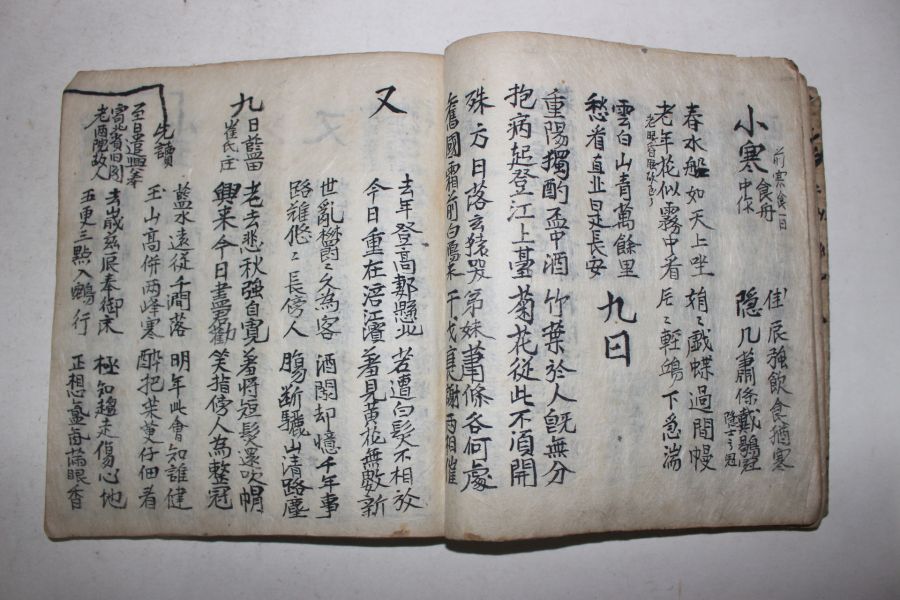 小寒食舟中作
前寒食一日
佳辰強飲食猶寒
隐几蕭條戴鶡冠
隐士之冠
春水船如天上坐 娟々戯蝶過間幔
老年花似霧中看 片々輕鴻下急湍
雲白山青萬餘里
愁看直北是長安
九日
重陽獨酌盃中酒 竹葉於人旣無分
抱病起登江上臺 菊花從此不須開
殊方日落玄猿哭 弟妹蕭條各何處
舊國霜前白鴈來 干戈衰謝兩相催
又
去年登高郪縣北 若遭白髮不相放
今日重在涪江濱 羞見黄花無數新
世亂欝々久為客 酒闌却憶十年事
路難悠々長傍人 膓斷驪山清路塵
九日藍田崔氏庄
老去悲秋強自寬 羞將短髮還吹帽
興来今日盡君歡 笑指傍人為整冠
藍水遠從千澗落 明年此會知誰健
玉山高併兩峰寒 醉把茱萸仔細看
先讀
至日遣興奉
寄北省旧閣
老兩院故人
去歲玆辰奉御床 極知趨走傷心地
五更三點入鵷行 正想氳氤滿眼香